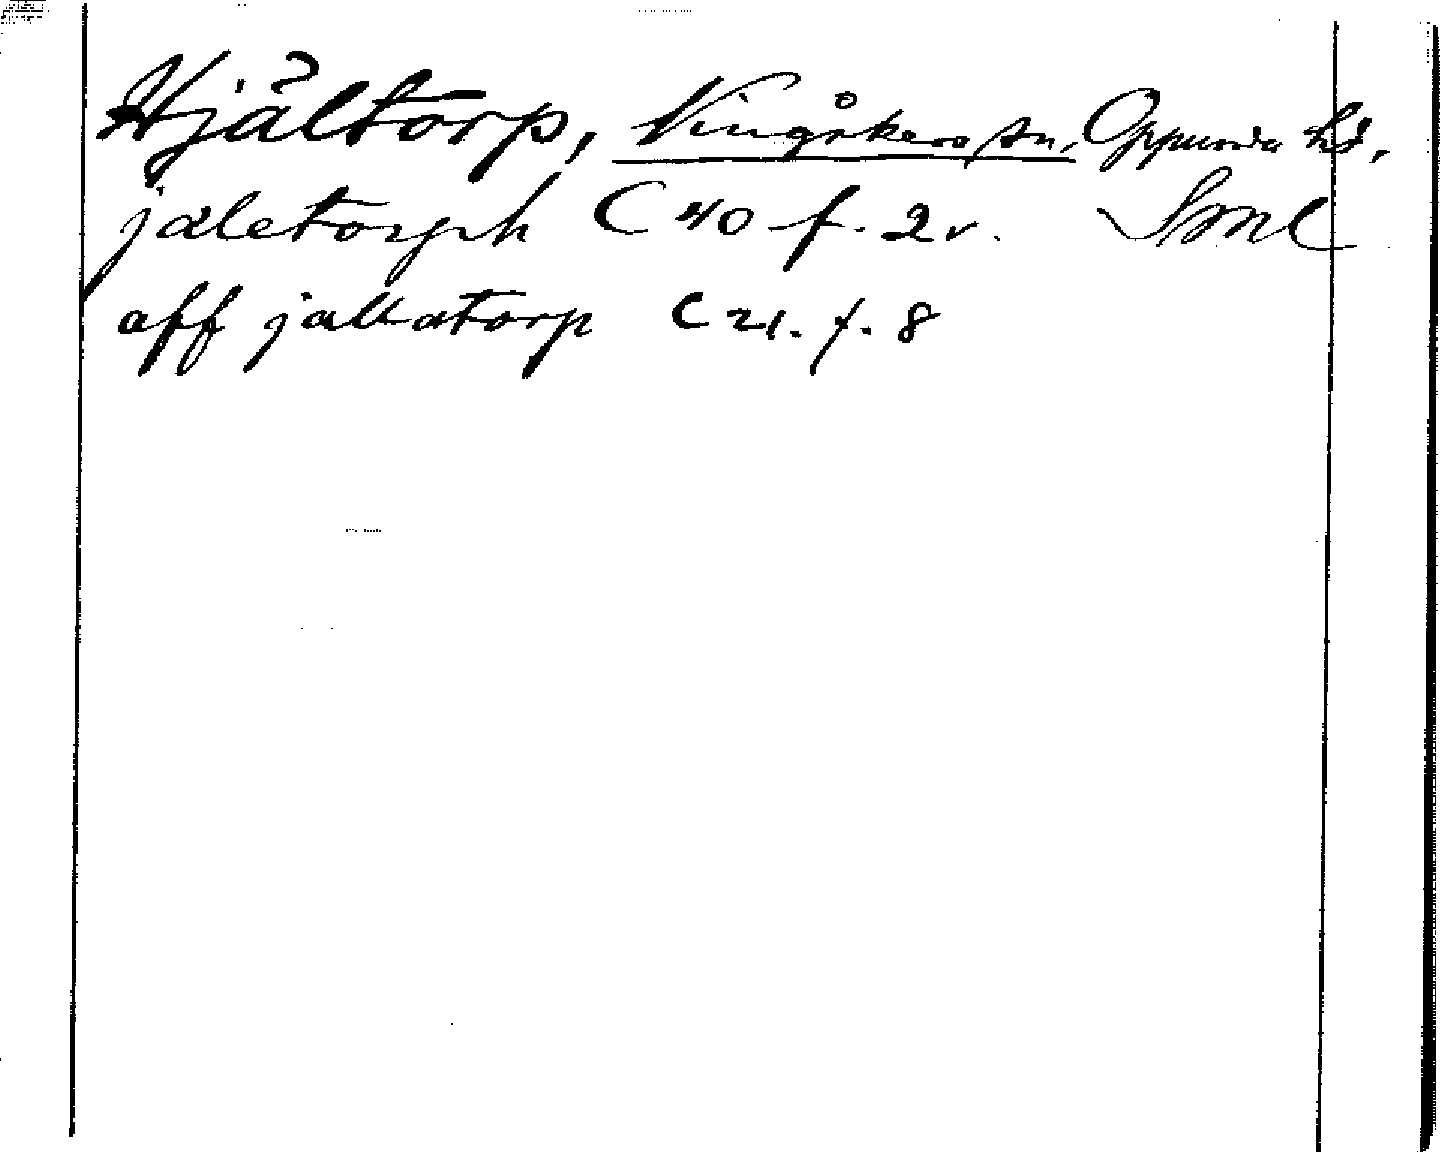 Hjältorp, Vingåkers sn, Oppunda hd,
jæletorph C 40 f. 2 v. Sml
aff jallatorp C 21. f. 8